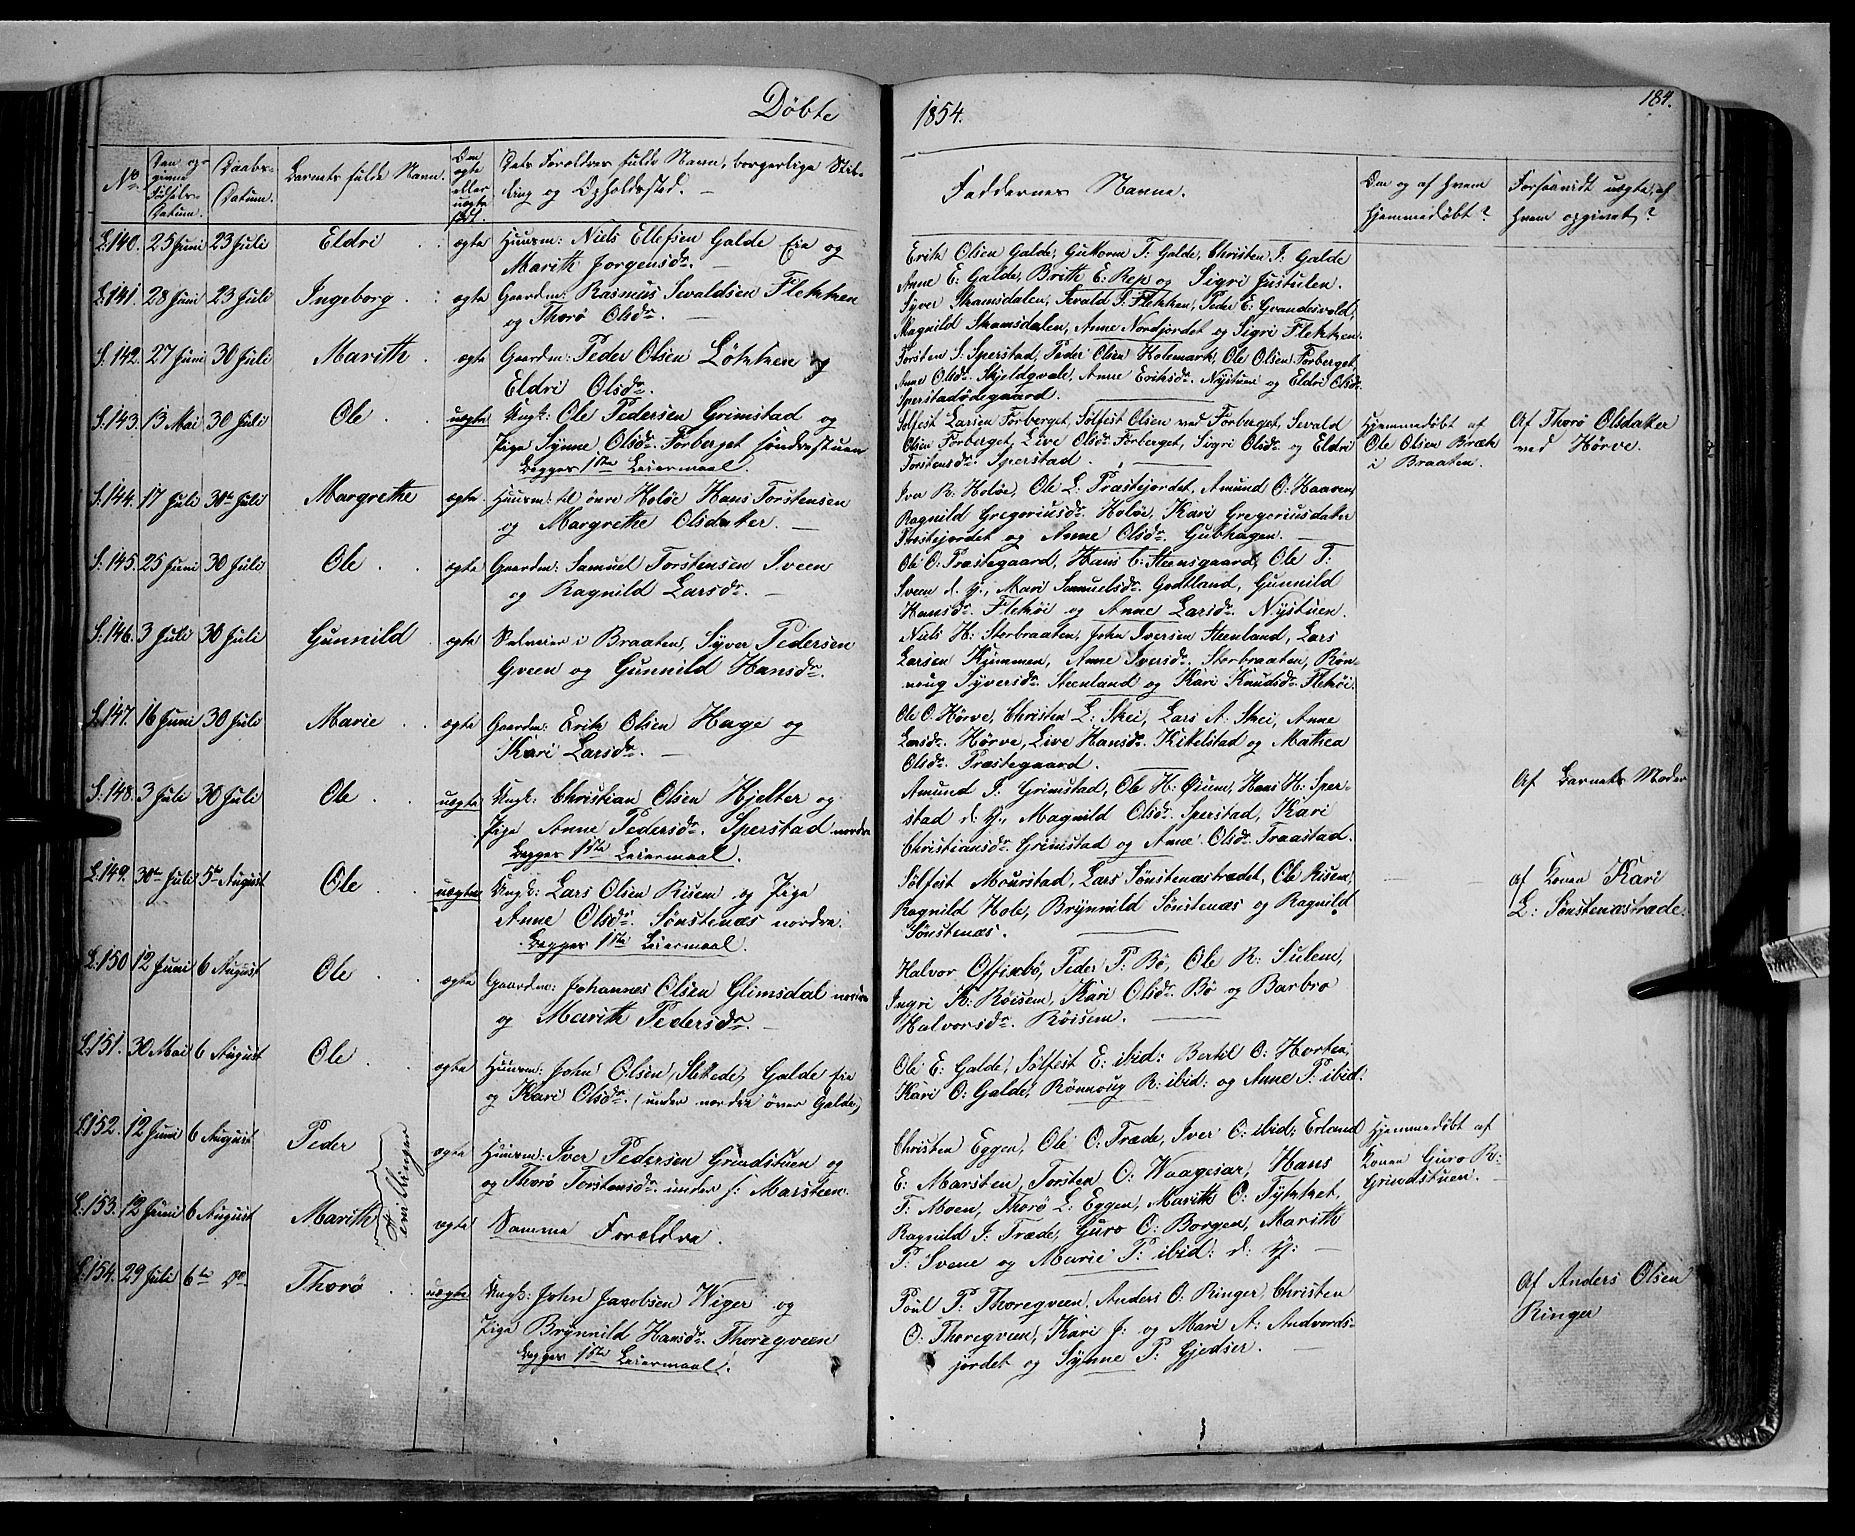 Døbte
1854.
184.
No
Den og-
givne
Fødsels-
Datum.
Daabs-
Datum.
Barnets fulde Navn.
Om
ægte
eller
uægte
født.
Dets Forældres fulde Navn, borgerlige Stil-
ling og Opholdssted.
Faddernes Navne.
Om og af hvem
hjemmedøbt?
Forsaavidt uægte, af
hvem opgivet?
L.140. 25 Juni 23 Juli Eldri ægte Huusm: Niels Ellefsen Galde Eie og
Marith Jorgensdr.
Erik Olsen Galde, Gutorm T: Galde, Christen T. Galde
Anne E: Galde, Brith E: Rep og Sigri Justulen.
L.141. 28 Juni 23 Juli Ingeborg ægte Gaardm: Rasmus Sevaldsen Flekken
og Thorø Olsdr.
Syver Skamsdalen, Sevald I: Flekken, Peder E: Grandesvold,
Magnild Skamsdalen, Anne Nordjordet og Sigri Flekken.
S.142. 27 Juni 30 Juli Marith ægte Gaardm: Peder Olsen Løkken og
Eldri Olsdr.
Torsten S: Sperstad, Peder Olsen Holemark, Ole Olsen Forberget,
Anne Olsdr. Skjeldqvale, Anne Eriksdr. Nystuen og Eldri Olsdr.
Sperstadødegaard.
S.143. 13 Mai 30 Juli Ole uægte Ungk: Ole Pedersen Grimstad og
Pige Synne Olsdr. Forberget Søndrestuen
Begges 1ste Leiermaal.
Solfest Larsen Forberget, Solfest Olsen ved Forberget, Sevald
Olsen Forberget, Live Olsdr. Forberget, Sigri Olsdr. og Eldri
Torstensdr. Sperstad.
Hjemmedøbt af
Ole Olsen Bræk
i Braaten.
Af Thorø Olsdater
ved Hørve.
S.144. 17 Juli 30te Juli Margrethe ægte Huusm: til övre Holøe Hans Torstensen
og Margrethe Olsdater.
Iver R: Holøe, Ole L: Præstejordet, Amund O: Haaven,
Ragnild Gregoriusdr. Holøe, Kari Gregoriusdater
Præstejordet og Anne Olsdr. Gubhagen.
S.145. 25 Juni 30 Juli Ole ægte Gaardm: Samuel Torstensen Sveen
og Ragnild Larsdr.
Ole O: Præstegaard, Hans C: Steensgaard, Ole T:
Sveen d. y., Mari Samuelsdr. Godtland, Gunnild
Hansdr. Flekøi og Anne Larsdr. Nystuen.
S.146. 3 Juli 30 Juli Gunnild ægte Selveier i Braaten, Syver Pedersen
Qveen og Gunnild Hansdr.
Niels H: Storbraaten, John Iversen Steenland, Lars
Larsen Kummen, Anne Iversdr. Storbraaten, Røn-
noug Syversdr. Steenland og Kari Knudsdr. Flekøi.
L.147. 16 Juni 30 Juli Marie ægte Gaardm: Erik Olsen Hage og
Kari Larsdr.
Ole O. Hørve, Christen L: Skei, Lars A: Skei, Anne
Larsdr. Hørve, Live Hansdr. Kikelstad og Mathea
Olsdr. Præstegaard.
S.148. 3 Juli 30 Juli Ole uægte Ungk: Christian Olsen Hjelter og
Pige Anne Pedersdr. Sperstad nordre
Begges 1ste Leiermaal.
Amund I: Grimstad, Ole H: Øium, Hans H: Sper-
stad d: y., Magnild Olsdr. Sperstad, Kari
Christiansdr. Grimstad og Anne Olsdr. Traastad.
Af Barnets Moder
L.149. 30te Juli 5te August Ole uægte Ungk: Lars Olsen Risem og Pige
Anne Olsdr. Sønstenæs nordre.
Begges 1ste Leiermaal.
Solfest Mourstad, Lars Sønstenæstrædet, Ole Risem,
Ragnild Hole, Brynnild Sønstenæs og Ragnild
Sønstenæs.
Af Konen Kari
L: Sønstenæstræde.
L.150 12 Juni 6 August Ole ægte Gaardm: Johannes Olsen Glimsdal
og Marith Pedersdr.
Halvor Offixbø, Peder P: Bø, Ole R: Sulem,
Ingri K: Røisem, Kari Olsdr. Bø og Barbro
Halvorsdr. Røisem.
L.151. 30 Mai 6 August Ole ægte Huusm: John Olsen, Slekede, Galde Eie
og Kari Olsdr. (under nordre över Galde)
Ole E: Galde, Solfest E: ibid: Bertil O: Horten,
Kari O: Galde, Rønnoug R: ibid: og Anne P: ibid:
L.152. 12 Juni 6 August Peder ægte Huusm: Iver Pedersen Grindstuen og
og Thorø Torstensdr. under s: Marsteen.
Tvillinger
Christen Eggen, Ole O. Træde, Iver O: ibid: Erland
E: Marsten, Torsten O: Waagesar, Hans
T: Moen, Thorø L: Eggen, Marith O: Tykket,
Ragnild I: Træde, Guro O: Borgen, Marith
P: Svene og Marie P: ibid: d: y:
Hjemmedøbt af
Konen Guro R:
Grindstuen.
L.153. 12 Juni 6 August Marith ægte Samme Forældre.
L.154. 29 Juli 6te do Thorø uægte Ungk: John Jacobsen Wiger og
Pige Brynnild Hansdr. Thoregveen
Begges 1ste Leiermaal.
Poul P: Thoregveen, Anders O: Ringer, Christen
O: Thoregveen, Kari J: og Mari A: Andvords-
jordet og Synne P: Gjedser.
Af Anders Olsen
Ringer